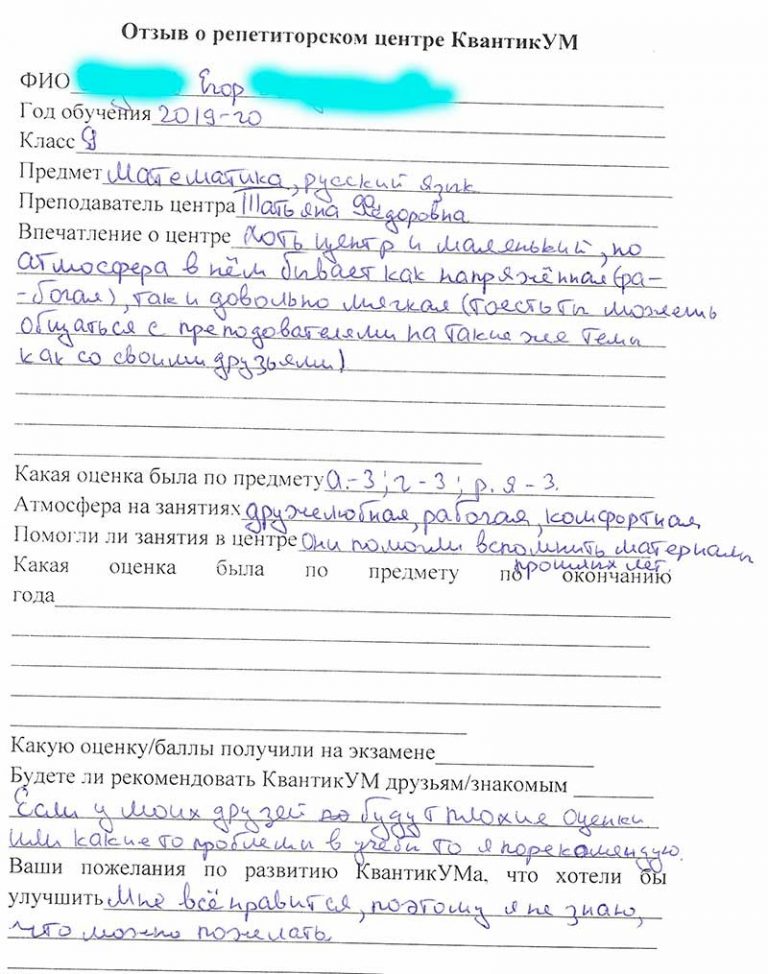 Отзыв о репетиторском центре КвантикУМ
ФИО Егор
Год обучения 2019-20
Класс 9
Предмет Математика, русский язык
Преподаватель центра Татьяна Фёдоровна
Впечатление о центре Хоть центр и маленький, но
атмосфера в нём бывает как напряжённая (ра-
-бочая), так и довольно мягкая (тоесть ты можешь
общаться с преподователями на такие же темы
как со своими друзьями)
Какая оценка была по предмету а.-3; г-3; р.я-3.
Атмосфера на занятиях дружелюбная, рабочая, комфортная
Помогли ли занятия в центре Они помогли вспомнить материалы
прошлых лет.
Какая оценка была по предмету по окончанию
года
Какую оценку/баллы получили на экзамене
Будете ли рекомендовать КвантикУМ друзьям/знакомым
Если у моих друзей будут плохие оценки
или какие то проблемы в учёбе то я порекомендую.
Ваши пожелания по развитию КвантикУМа, что хотели бы
улучшить Мне всё нравится, поэтому я не знаю,
что можно пожелать.